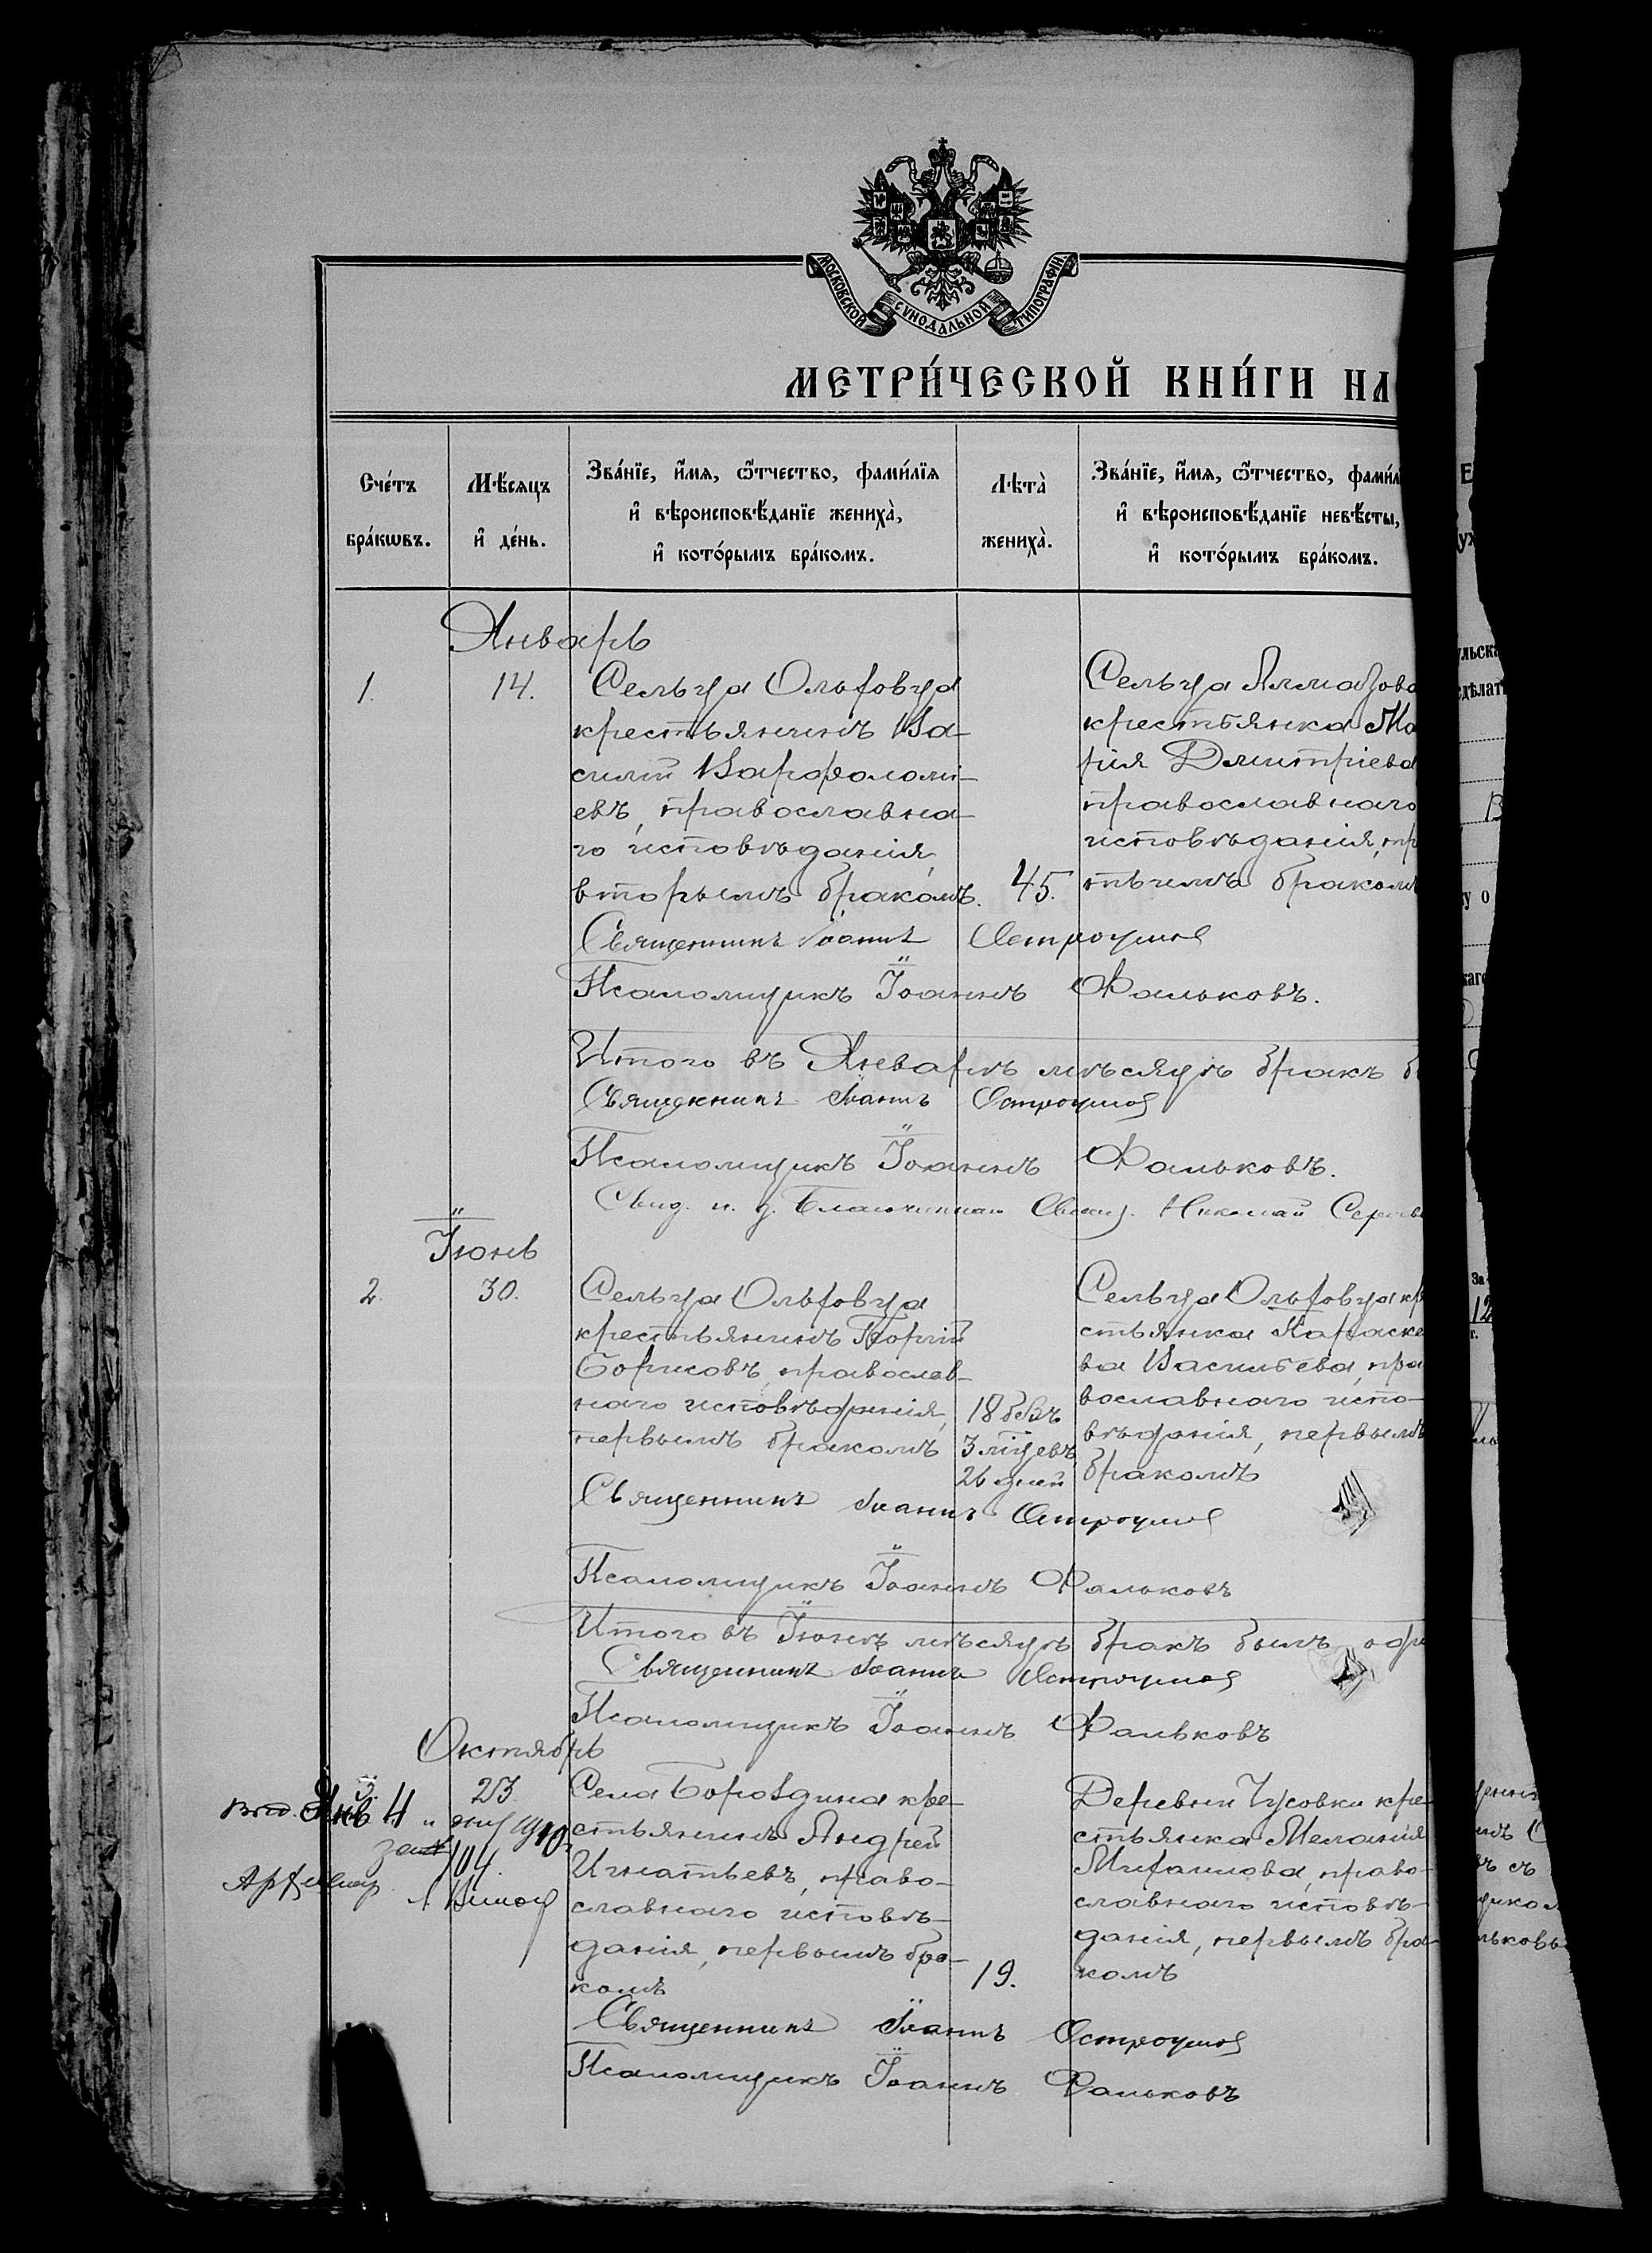 МОСКОВСКОЙ СУНОДАЛЬНОЙ ТИПОГРАФІИ
МЕТРИ́ЧЕСКОЙ КНИ́ГИ НА
Сче́тъ бра́кωвъ.
Мѣ́сяцъ и҆ де́нь.
Зва́нїе, и҆́мѧ, ѻ҆́тчество, фами́лїѧ
и҆ вѣроисповѣ́данїе жениха̀,
и҆ кото́рымъ бра́комъ.
Лѣта̀ жениха̀.
Зва́нїе, и҆́мѧ, ѻ҆́тчество, фами́л
и҆ вѣроисповѣ́данїе невѣ́сты,
и҆ кото́рымъ бра́комъ.
Январь
1.
14.
Сельца Ольховца
крестьянинъ Ва-
силій Варфоломі-
евъ, православна-
го исповѣданія,
вторымъ бракомъ.
45.
Сельца Алмазово
крестьянка Ма
рія Дмитріева
православнаго
исповѣданія, тр
тьимъ бракомъ
Священникъ Іоаннъ Остроумов
Псаломщикъ Іоаннъ Фальковъ.
Итого въ Январѣ мѣсяцѣ бракъ б
Священникъ Іоаннъ Остроумов
Псаломщикъ Іоаннъ Фальковъ.
Свид. и. д. Николай
Іюнь
2.
30.
Сельца Ольховца
крестьянинъ Георгій
Борисовъ, православ-
наго исповѣданія,
первымъ бракомъ
18 безъ
3 мѣцевъ
26 дней
Сельца Ольховца кр
стьянка Параске
ва Васильева, пра
вославнаго испо-
вѣданія, первымъ
бракомъ
Священникъ Іоаннъ Остроумов
Псаломщикъ Іоаннъ Фальковъ
Итого въ Іюнѣ мѣсяцѣ бракъ былъ оди
Священникъ Іоаннъ Остроумов
Псаломщикъ Іоаннъ Фальковъ
Октябрь
3.
23.
Янв 4
104.
Села Бороздина кре-
стьянинъ Андрей
Игнатьевъ, право-
славнаго исповѣ-
данія, первымъ бра-
комъ
19.
Деревни Чусовки кре-
стьянка Меланія
Михаилова, право-
славнаго исповѣ-
данія, первымъ бра-
комъ
Священникъ Іоаннъ Остроумов
Псаломщикъ Іоаннъ Фальковъ